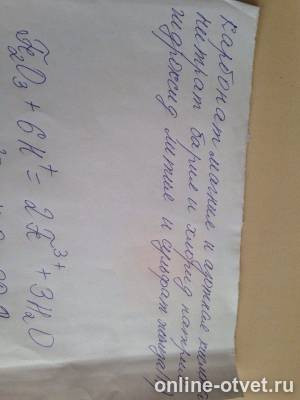 Карбонат магние и азотная кислота
нитрат бария и хлорид натрия
гидроксид лития и сульфат
Fe₂O₃ + 6H⁺ = 2Fe³⁺ + 3H₂O
online-otvet.ru